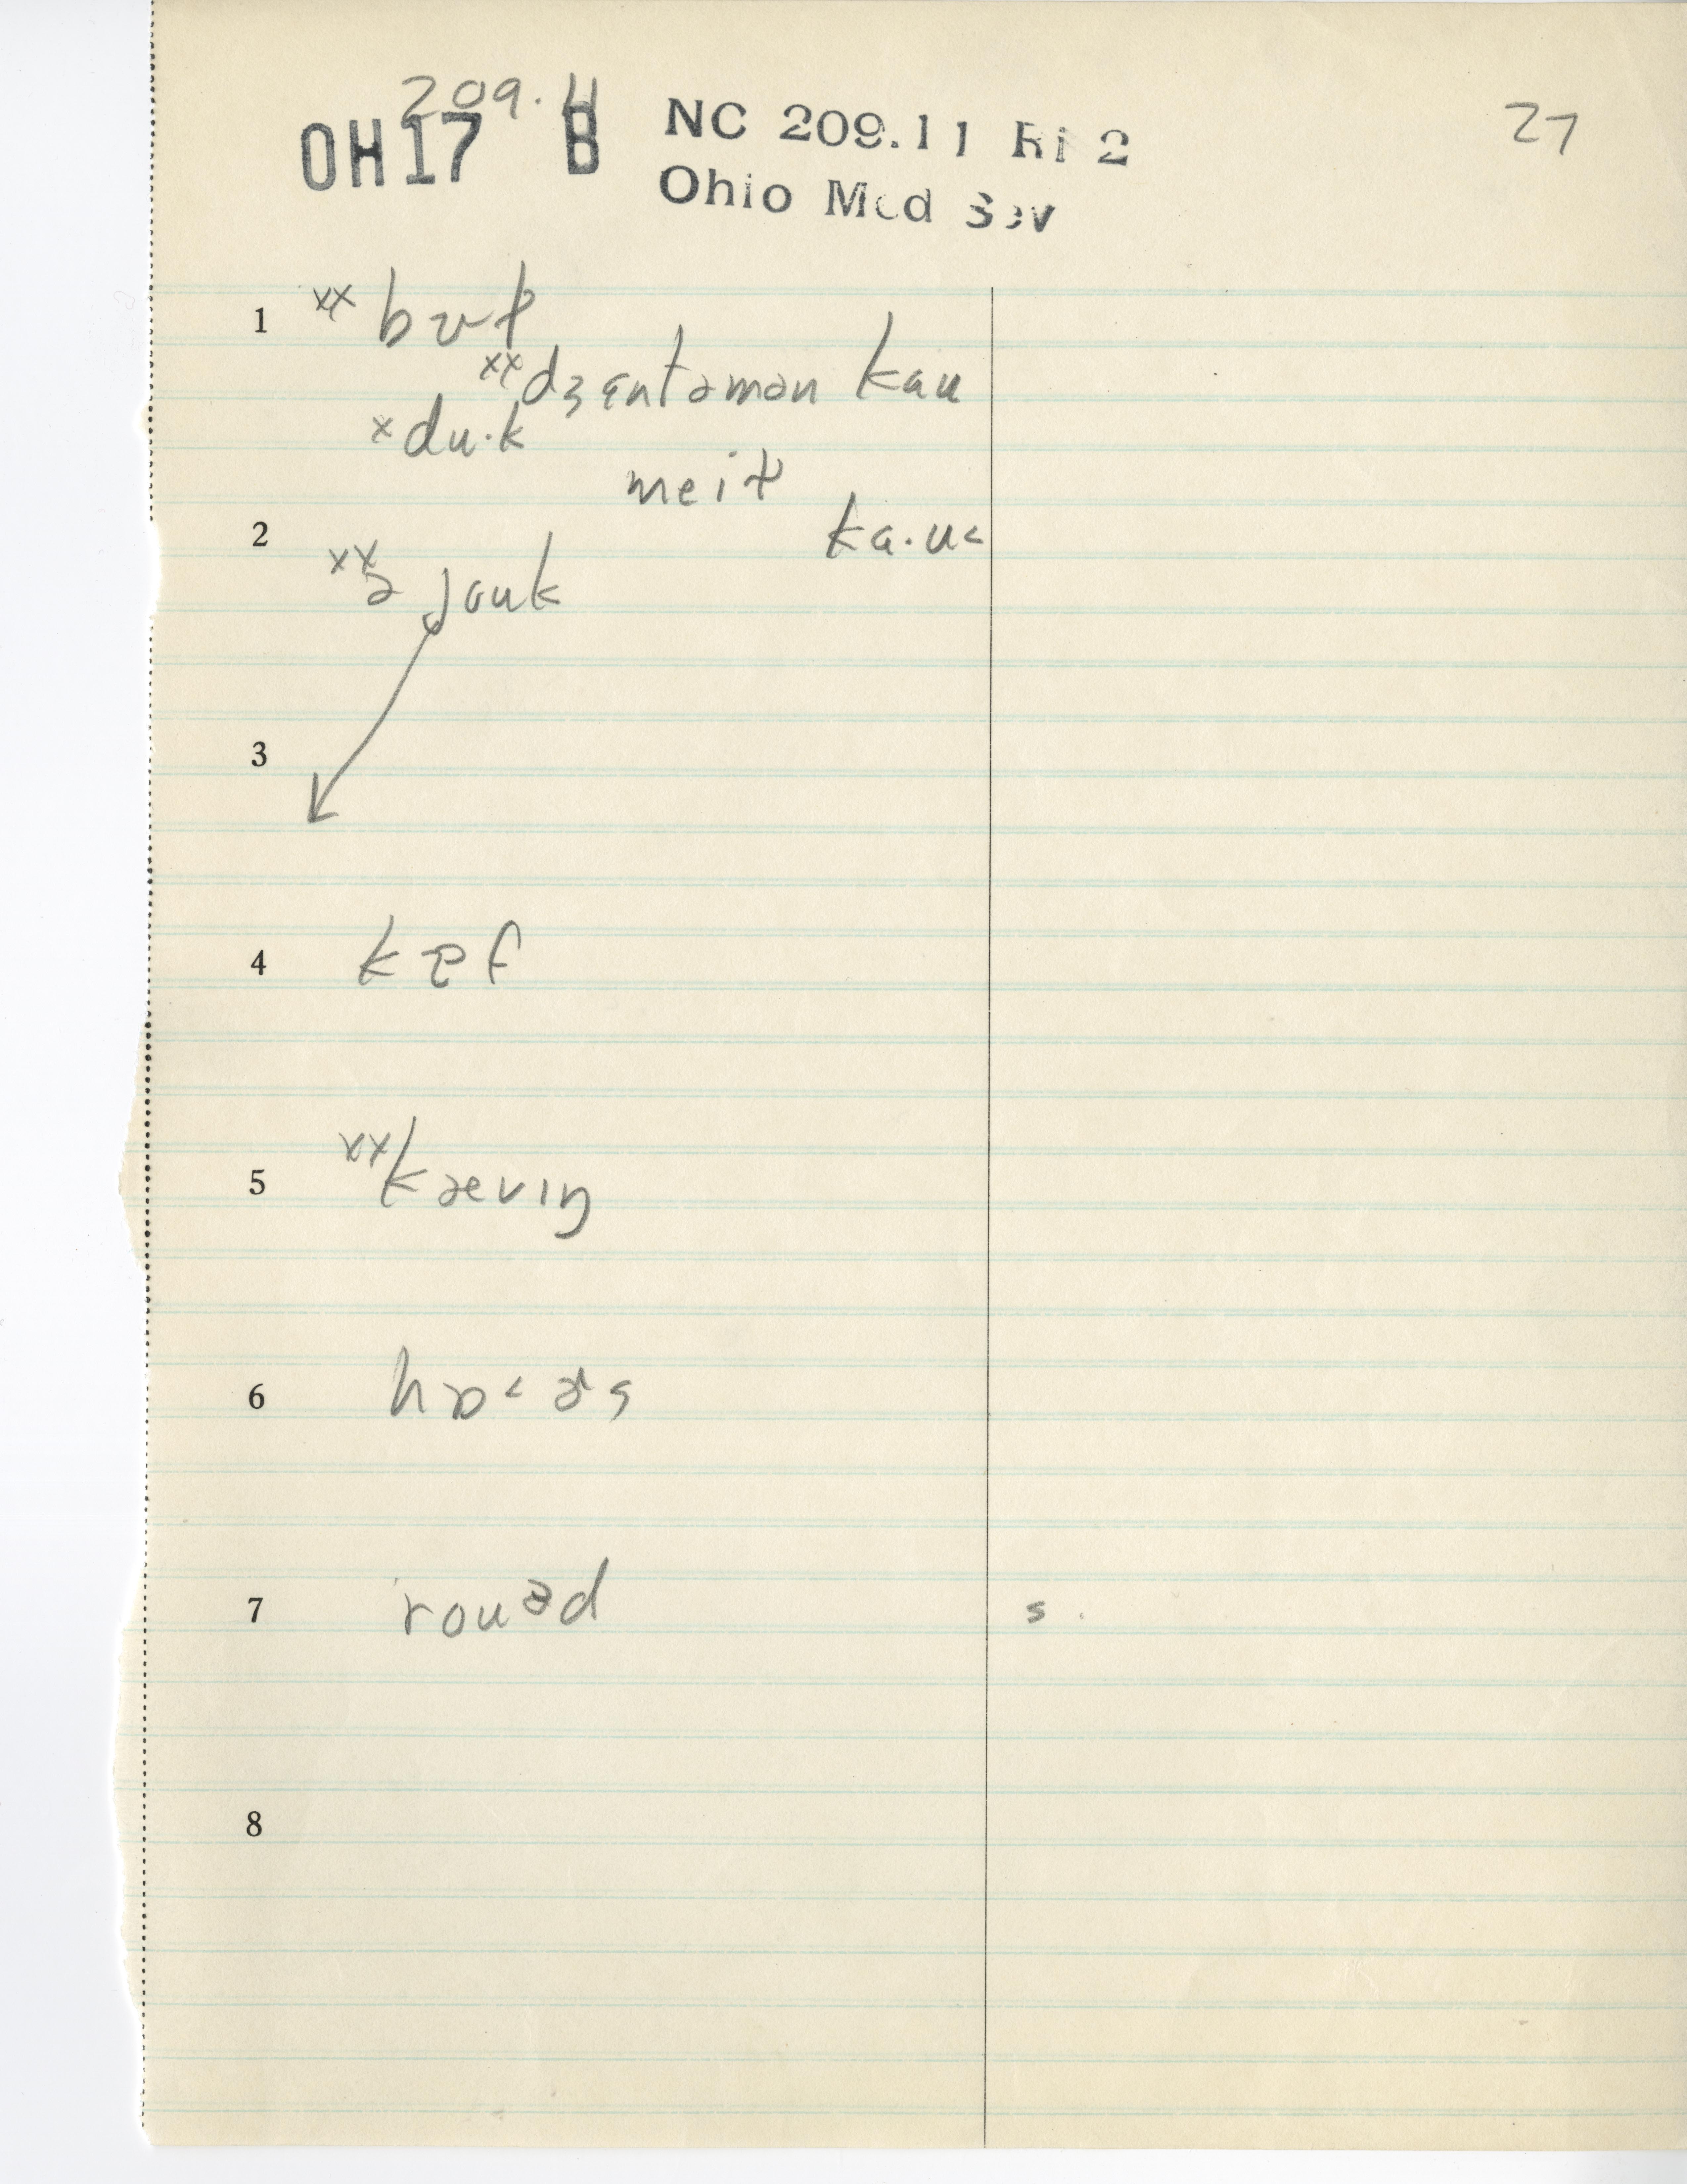 209.11
OH17 B NC 209.11 Ri 2 27
Ohio Med Sev
1 xx bʊɫ
xx dʒɛntəmən kau
x du·k
meiɫ
2 ka·u<
xx ə jouk
3
4 kɐf
5 xx kævɪŋ
6 hɒ< ɚs
7 rouəd s.
8